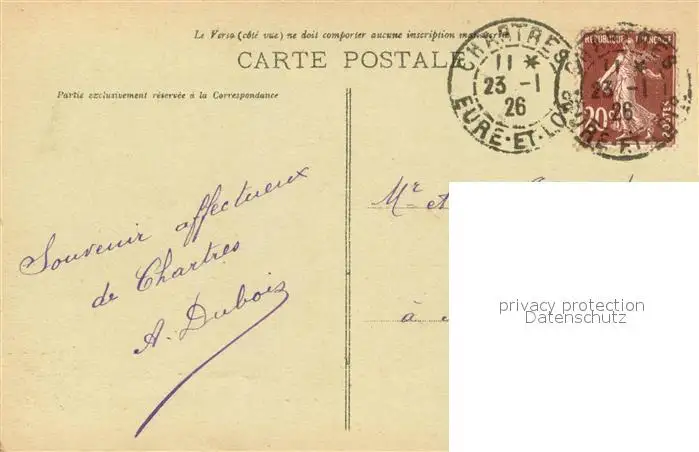 Le Verso (côté vue) ne doit comporter aucune inscription manuscrite
CARTE POSTALE
Partie exclusivement réservée à la Correspondance
CHARTRES
11 *
23 - 1
26
EURE-ET-LOIR
REPUBLIQUE FRANÇAISE
20c
POSTES
CHARTRES
11 *
23 - 1
26
EURE-ET-LOIR
Souvenir affectueux
de Chartres
A. Dubois
Mr et
à
privacy protection
Datenschutz